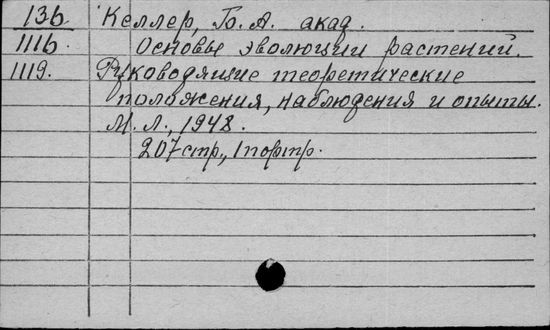 136 Келлер, Б. А. акад.
1116. Основы эволюции растений.
1119. Руководящие теоретические
положения, наблюдения и опыты.
М. Л., 1948.
207 стр., 1 портр.